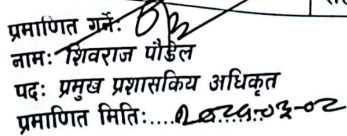 प्रमाणित गर्ने:
नामः शिवराज पौडेल
पदः प्रमुख प्रशासकिय अधिकृत
प्रमाणित मितिः....२०८१-०३-०२